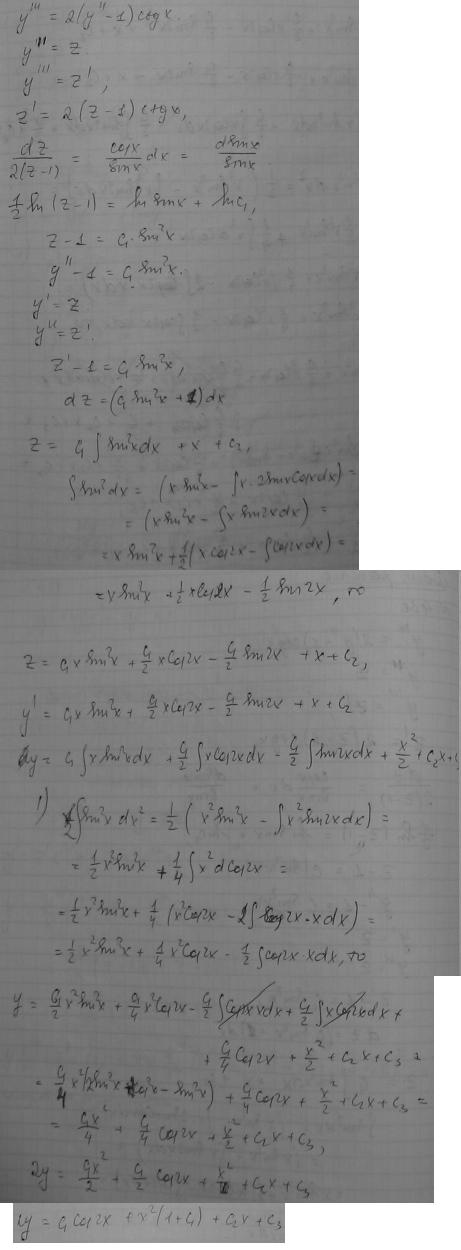 y''' = 2(y'' - 1) ctgx.
y'' = z
y''' = z',
z' = 2(z - 1) ctgx,
dz/2(z-1) = cosx/sinx dx = dsinx/sinx
1/2 ln(z-1) = ln sinx + ln C₁,
z - 1 = C₁ sin²x
y'' - 1 = C₁ sin²x.
y' = z
y'' = z'.
z' - 1 = C₁ sin²x,
dz = (C₁ sin²x + 1) dx
z = C₁ ∫ sin²x dx + x + C₂,
∫ sin² dx = (x sin²x - ∫ x · 2 sinx cosx dx) =
= (x sin²x - ∫ x sin2x dx) =
= x sin²x + 1/2 (x cos2x - ∫ cos2x dx) =
= x sin²x + 1/2 x cos2x - 1/2 sin2x, то
z = C₁ x sin²x + C₁/2 x cos2x - C₁/2 sin2x + x + C₂,
y' = C₁ x sin²x + C₁/2 x cos2x - C₁/2 sin2x + x + C₂
y = C₁ ∫ x sin²x dx + C₁/2 ∫ x cos2x dx - C₁/2 ∫ sin2x dx + x²/2 + C₂x + C₃
1) 1/2 ∫ sin²x dx² = 1/2 (x² sin²x - ∫ x² sin2x dx) =
= 1/2 x² sin²x + 1/4 ∫ x² d cos2x =
= 1/2 x² sin²x + 1/4 (x² cos2x - 2 ∫ cos2x · x dx) =
= 1/2 x² sin²x + 1/4 x² cos2x - 1/2 ∫ cos2x · x dx, то
y = C₁/2 x² sin²x + C₁/4 x² cos2x - C₁/2 ∫ cos2x x dx + C₁/2 ∫ x cos2x dx +
+ C₁/4 cos2x + x²/2 + C₂x + C₃ =
= C₁/4 x² (2 sin²x + cos²x - sin²x) + C₁/4 cos2x + x²/2 + C₂x + C₃ =
= C₁x²/4 + C₁/4 cos2x + x²/2 + C₂x + C₃,
2y = C₁x²/2 + C₁/2 cos2x + x² + C₂x + C₃
2y = C₁ cos2x + x²(1 + C₁) + C₂x + C₃